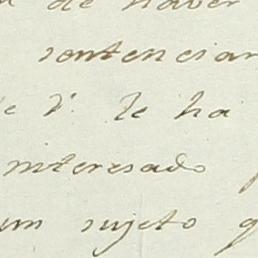 de haver
sentencian
de V. le ha
interesado
un sujeto q